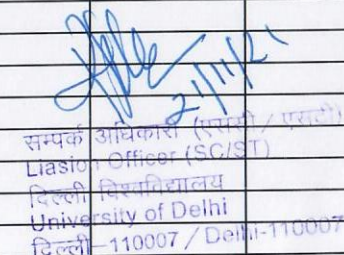 21/11/21
सम्पर्क अधिकारी (एससी / एसटी)
Liasion Officer (SC/ST)
दिल्ली विश्वविद्यालय
University of Delhi
दिल्ली-110007 / Delhi-110007